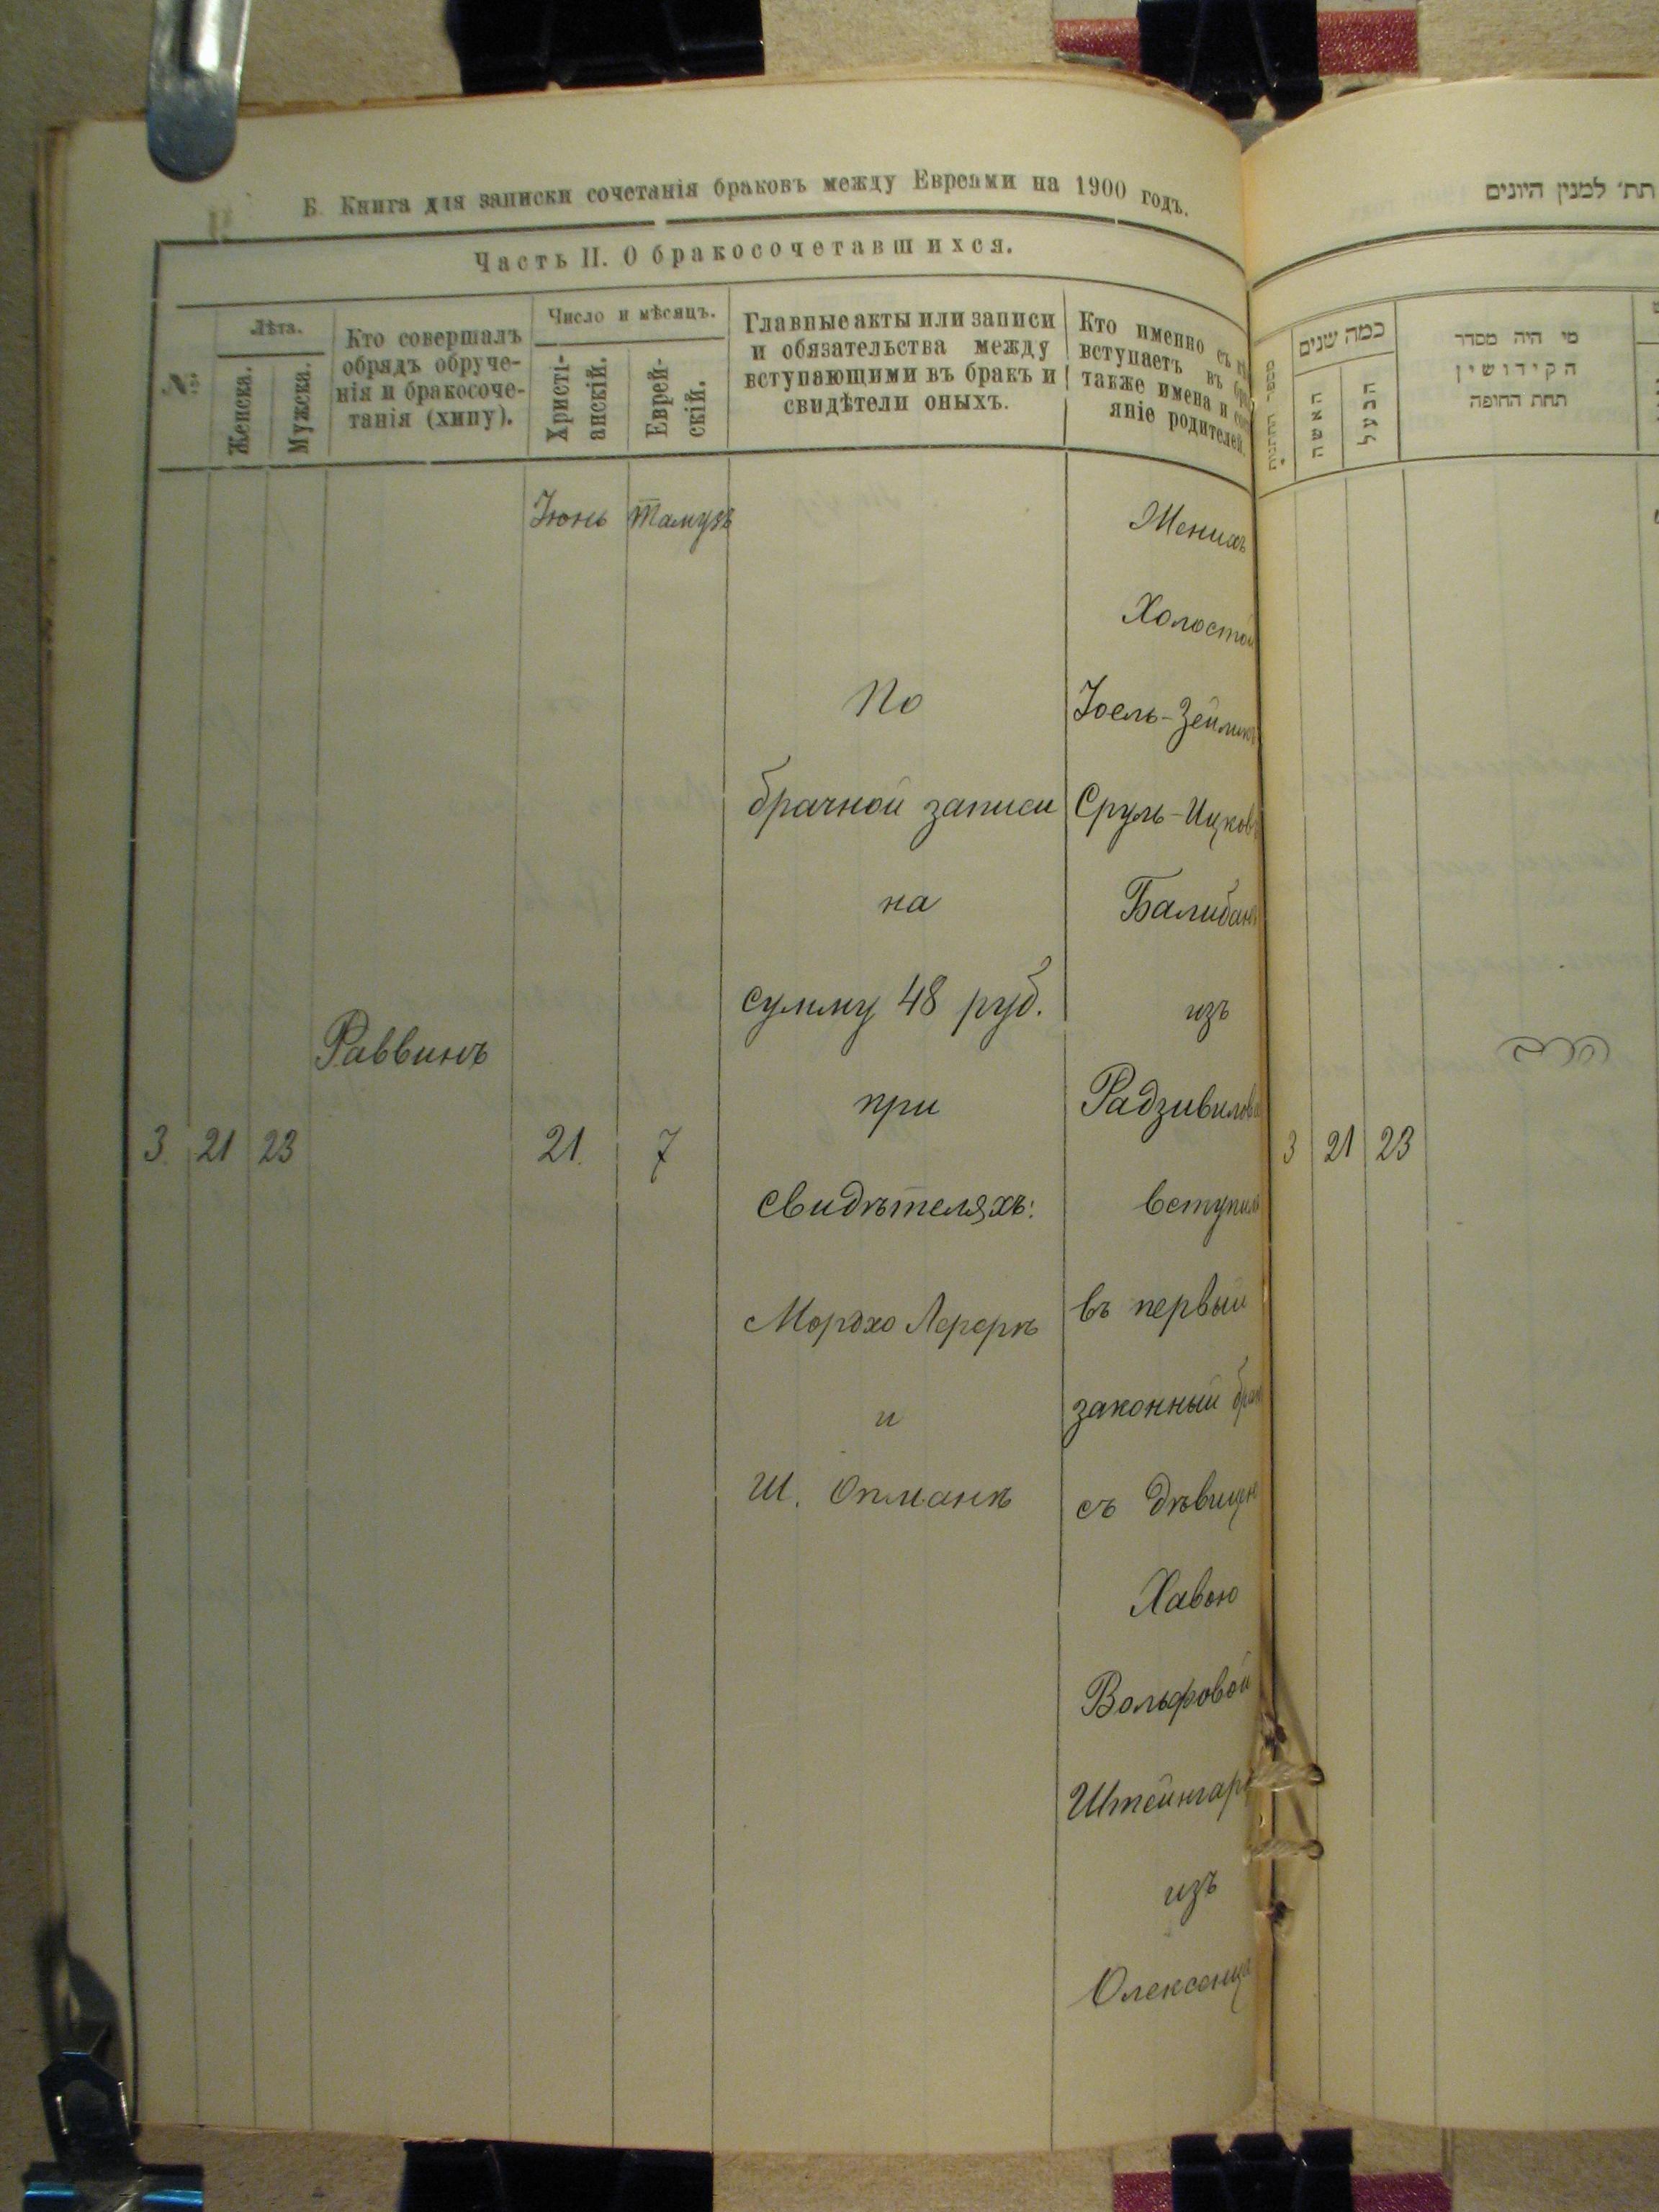 Б. Книга для записки сочетанія браковъ между Евреями на 1900 годъ.
Часть II. О бракосочетавшихся.
№
Лѣта.
Женска.
Мужска.
Кто совершалъ
обрядъ обруче-
нія и бракосоче-
танія (хипу).
Число и мѣсяцъ.
Христі-
анскій.
Еврей-
скій.
Главные акты или записи
и обязательства между
вступающими въ бракъ и
свидѣтели оныхъ.
Кто именно съ
вступаетъ въ
также имена и
яніе родителей.
Іюнь
Тамузъ
3. 21 23
Раввинъ
21.
7
По
брачной записи
на
сумму 48 руб.
при
свидѣтеляхъ:
Мордхо Лерерѣ
и
Ш. Окманѣ
Женихъ
Холостой
Іоель-Зейликъ
Сруль-Ицков
Балабан
изъ
Радзивилова
вступилъ
въ первый
законный брак
съ дѣвицею
Хавою
Вольфовой
Штейнгар
изъ
Олексенца
תת׳ למנין היונים
כמה שנים
האשה
הבעל
מי היה מסדר
הקידושין
תחת החופה
3 21 23
הרב